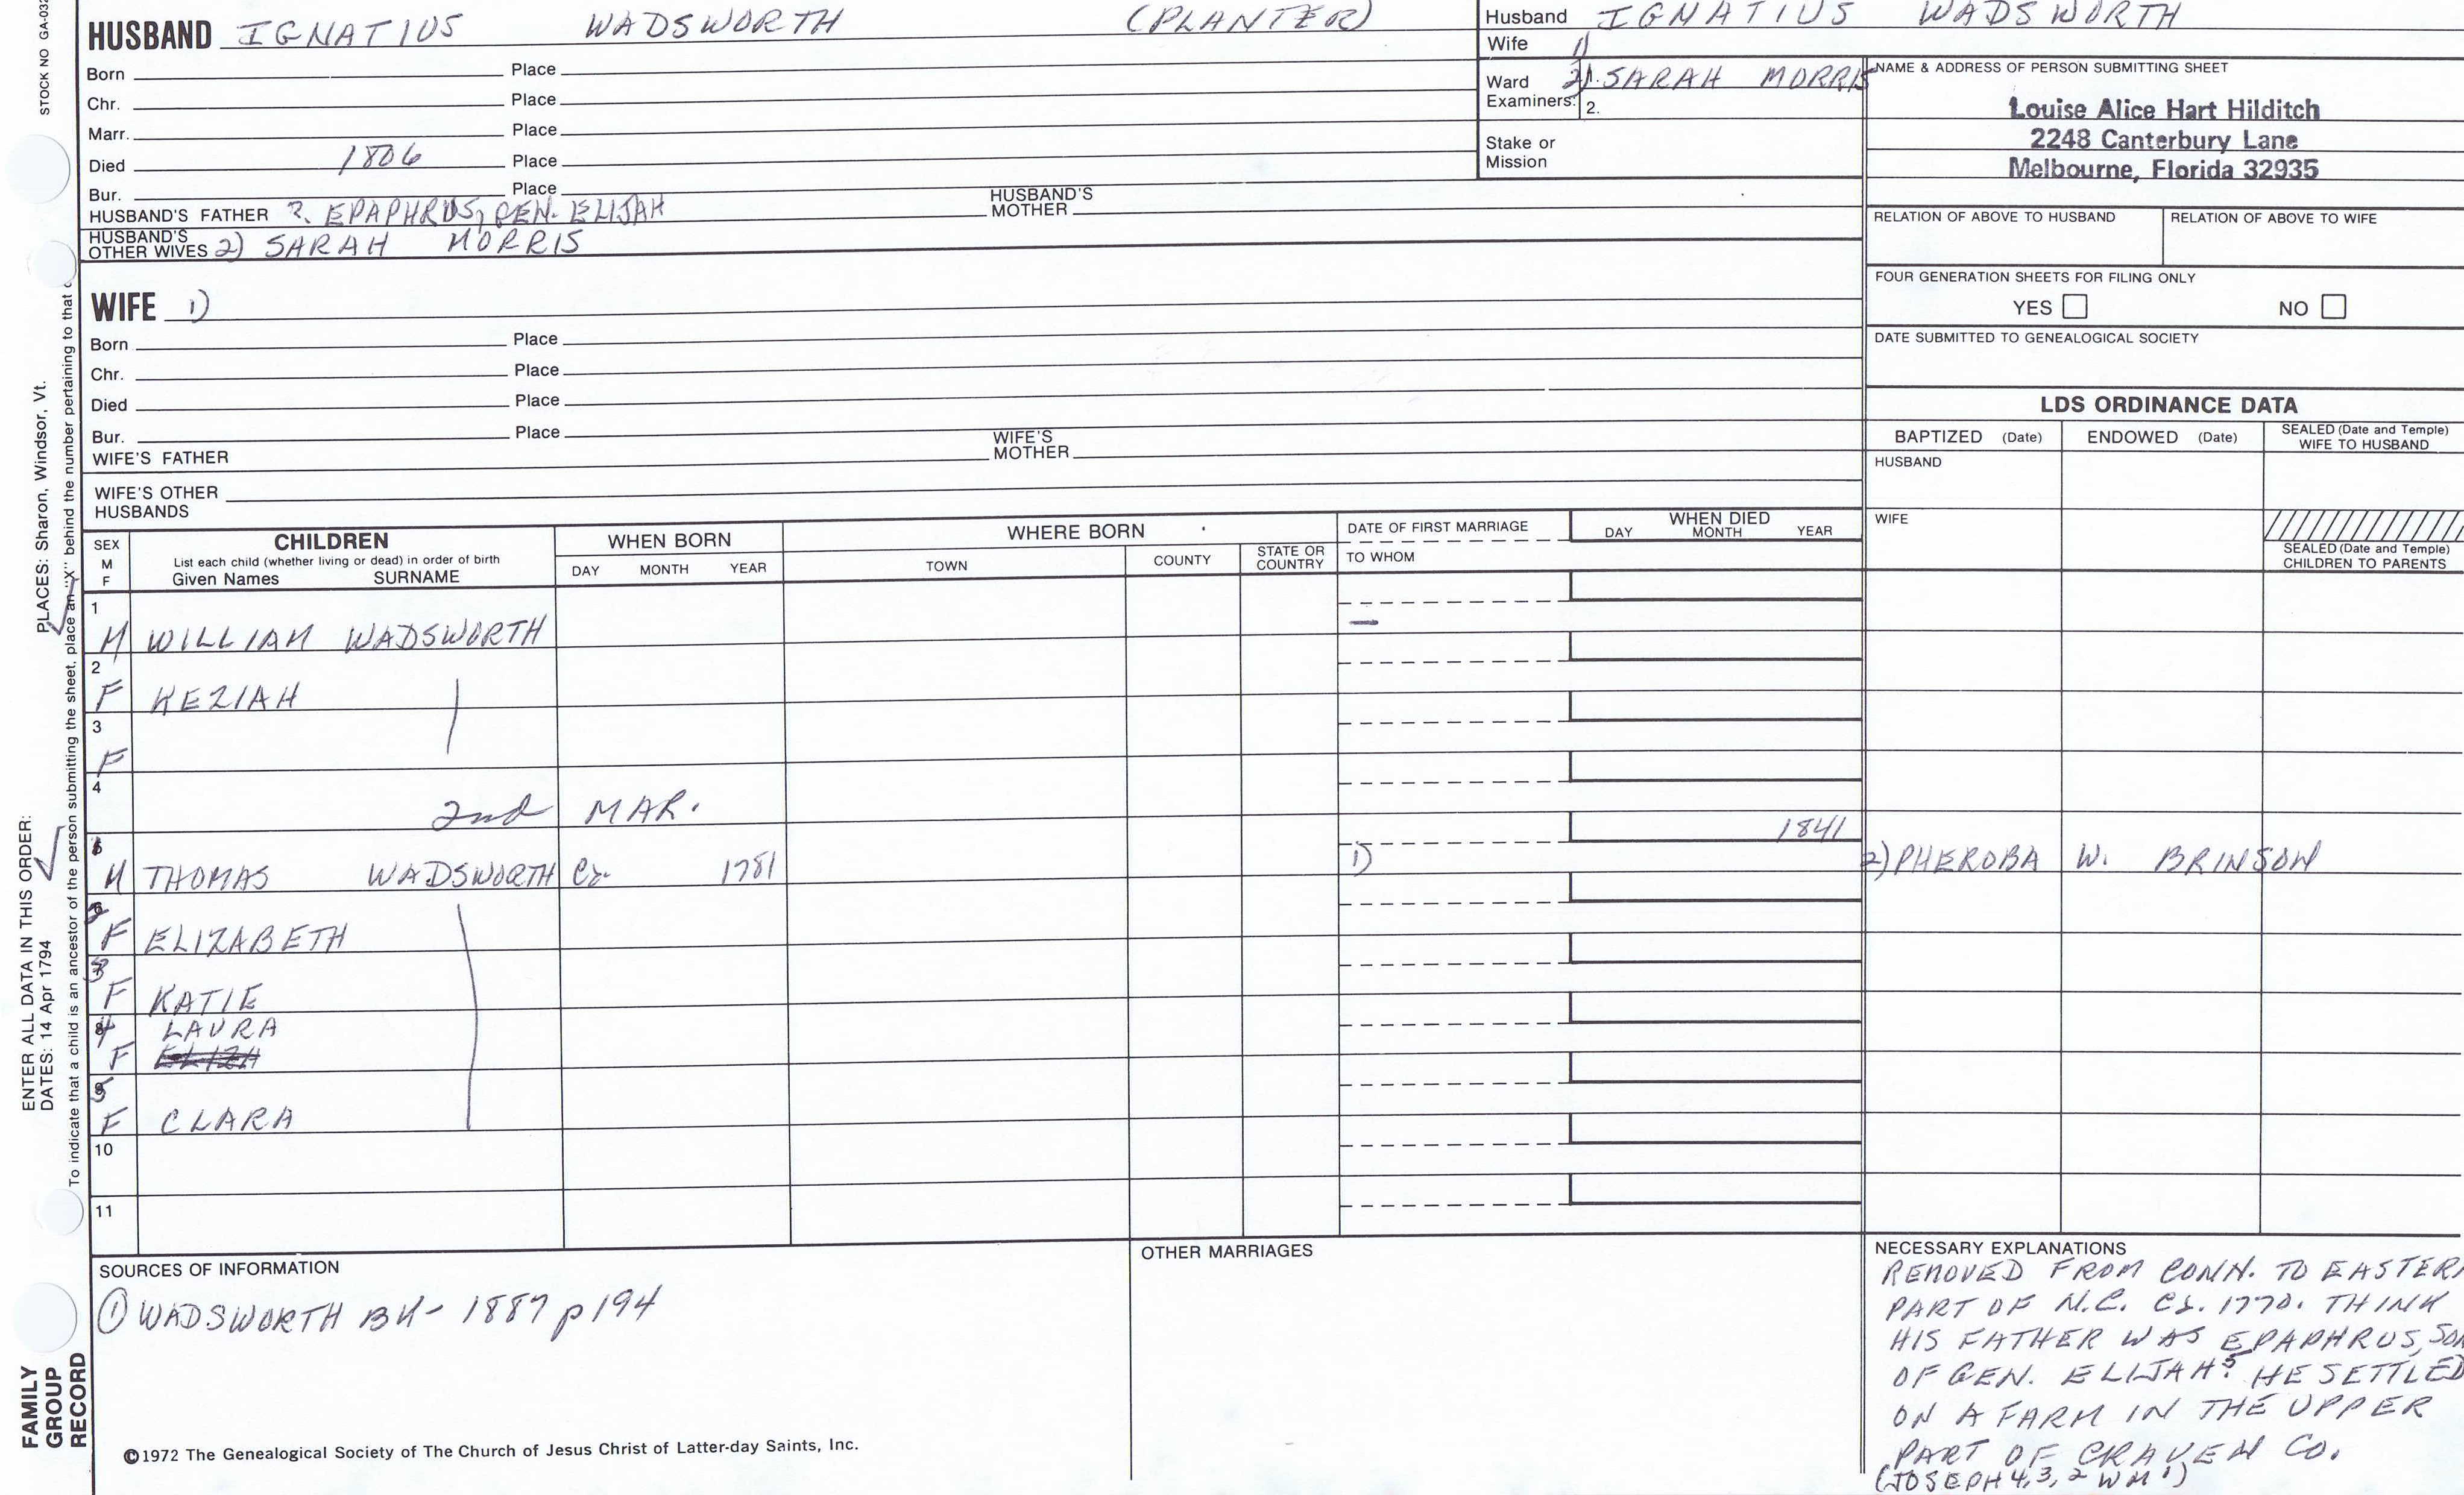 STOCK NO GA-032
HUSBAND IGNATIUS WADSWORTH (PLANTER)
Born Place
Chr. Place
Marr. Place
Died 1806 Place
Bur. Place
HUSBAND'S FATHER ?. EPAPHRUS, GEN. ELIJAH HUSBAND'S MOTHER
HUSBAND'S OTHER WIVES 2) SARAH MORRIS
WIFE 1)
Born Place
Chr. Place
Died Place
Bur. Place
WIFE'S FATHER WIFE'S MOTHER
WIFE'S OTHER HUSBANDS
Husband IGNATIUS WADSWORTH
Wife 1)
Ward 2) SARAH MORRIS
Examiners: 2.
Stake or Mission
NAME & ADDRESS OF PERSON SUBMITTING SHEET
Louise Alice Hart Hilditch
2248 Canterbury Lane
Melbourne, Florida 32935
RELATION OF ABOVE TO HUSBAND RELATION OF ABOVE TO WIFE
FOUR GENERATION SHEETS FOR FILING ONLY
YES NO
DATE SUBMITTED TO GENEALOGICAL SOCIETY
LDS ORDINANCE DATA
BAPTIZED (Date) ENDOWED (Date) SEALED (Date and Temple) WIFE TO HUSBAND
HUSBAND
WIFE
SEALED (Date and Temple) CHILDREN TO PARENTS
SEX M F
CHILDREN
List each child (whether living or dead) in order of birth
Given Names SURNAME
WHEN BORN
DAY MONTH YEAR
WHERE BORN
TOWN COUNTY STATE OR COUNTRY
DATE OF FIRST MARRIAGE
TO WHOM
WHEN DIED
DAY MONTH YEAR
1
M WILLIAM WADSWORTH
2
F KEZIAH
3
F
4
2nd MAR.
1841
M THOMAS WADSWORTH Ca. 1781 1) 2) PHEROBA W. BRINSON
2
F ELIZABETH
3
F KATIE
4 LAURA
F
5
F CLARA
10
11
SOURCES OF INFORMATION
① WADSWORTH BK- 1887 p 194
OTHER MARRIAGES
NECESSARY EXPLANATIONS
REMOVED FROM CONN. TO EASTERN
PART OF N.C. Ca. 1770. THINK
HIS FATHER WAS EPAPHRUS, SON
OF GEN. ELIJAH5. HE SETTLED
ON A FARM IN THE UPPER
PART OF CRAVEN CO.
(JOSEPH 4,3,2 WM 1)
©1972 The Genealogical Society of The Church of Jesus Christ of Latter-day Saints, Inc.
FAMILY GROUP RECORD
ENTER ALL DATA IN THIS ORDER:
DATES: 14 Apr 1794 PLACES: Sharon, Windsor, Vt.
To indicate that a child is an ancestor of the person submitting the sheet, place an "X" behind the number pertaining to that